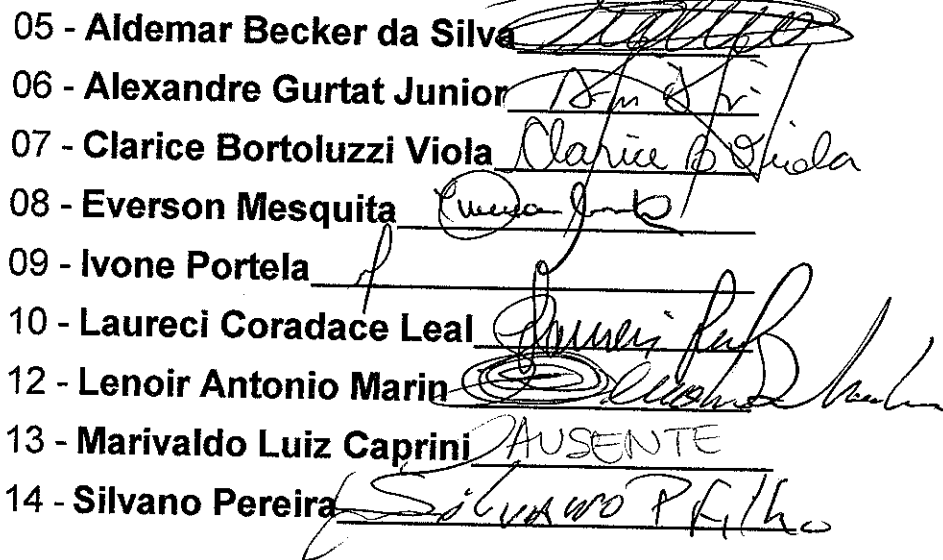 05 - Aldemar Becker da Silva
06 - Alexandre Gurtat Junior
07 - Clarice Bortoluzzi Viola Clarice B Viola
08 - Everson Mesquita
09 - Ivone Portela
10 - Laureci Coradace Leal
12 - Lenoir Antonio Marin
13 - Marivaldo Luiz Caprini AUSENTE
14 - Silvano Pereira Silvano P Filho